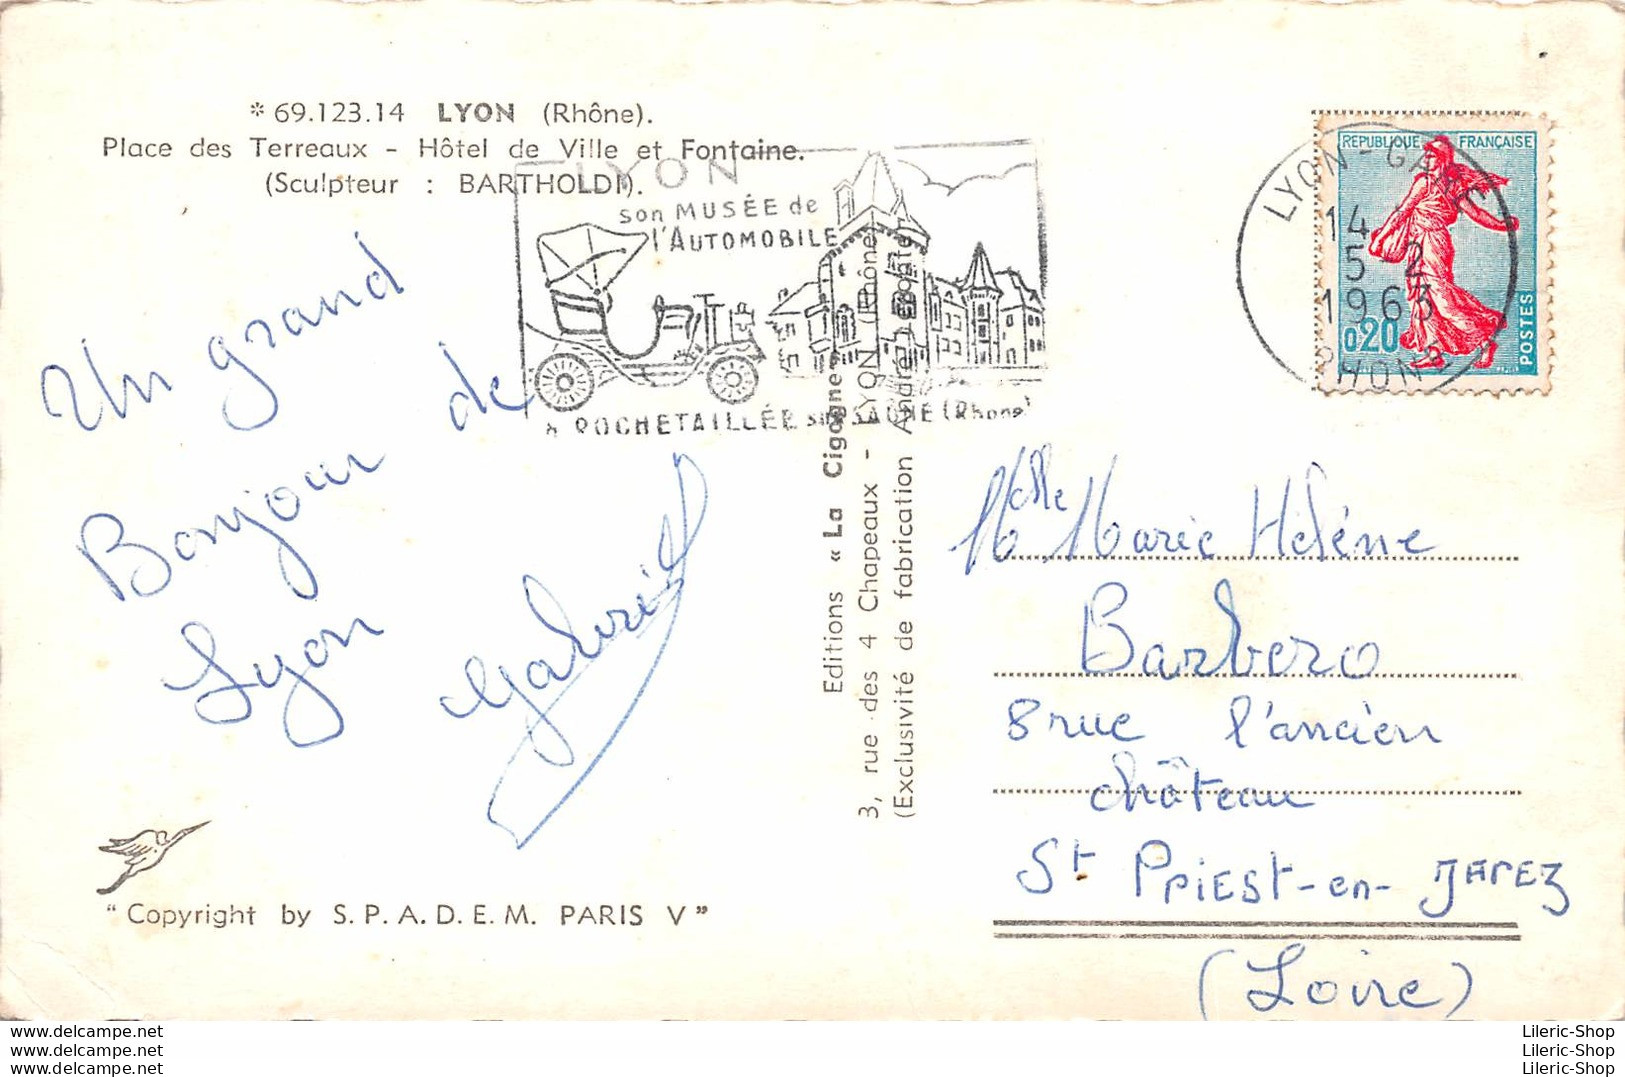 * 69.123.14 LYON (Rhône).
Place des Terreaux - Hôtel de Ville et Fontaine.
(Sculpteur : BARTHOLDI).
LYON
son MUSÉE de
l'AUTOMOBILE
A ROCHETAILLÉE sur SAÔNE (Rhône)
REPUBLIQUE FRANÇAISE
0,20
POSTES
LYON-GARE
14
5-2
1963
RHONE
Un grand
Bonjour de
Lyon
Gabriel
Editions « La Cigogne »
3, rue des 4 Chapeaux - LYON (Rhône)
(Exclusivité de fabrication André Leconte)
Melle Marie Hélène
Barbero
8 rue l'ancien
château
St Priest-en-JAREZ
(Loire)
"Copyright by S.P.A.D.E.M. PARIS V"
Lileric-Shop.com
Lileric-Shop.com
Lileric-Shop.com
Lileric-Shop
Lileric-Shop
Lileric-Shop